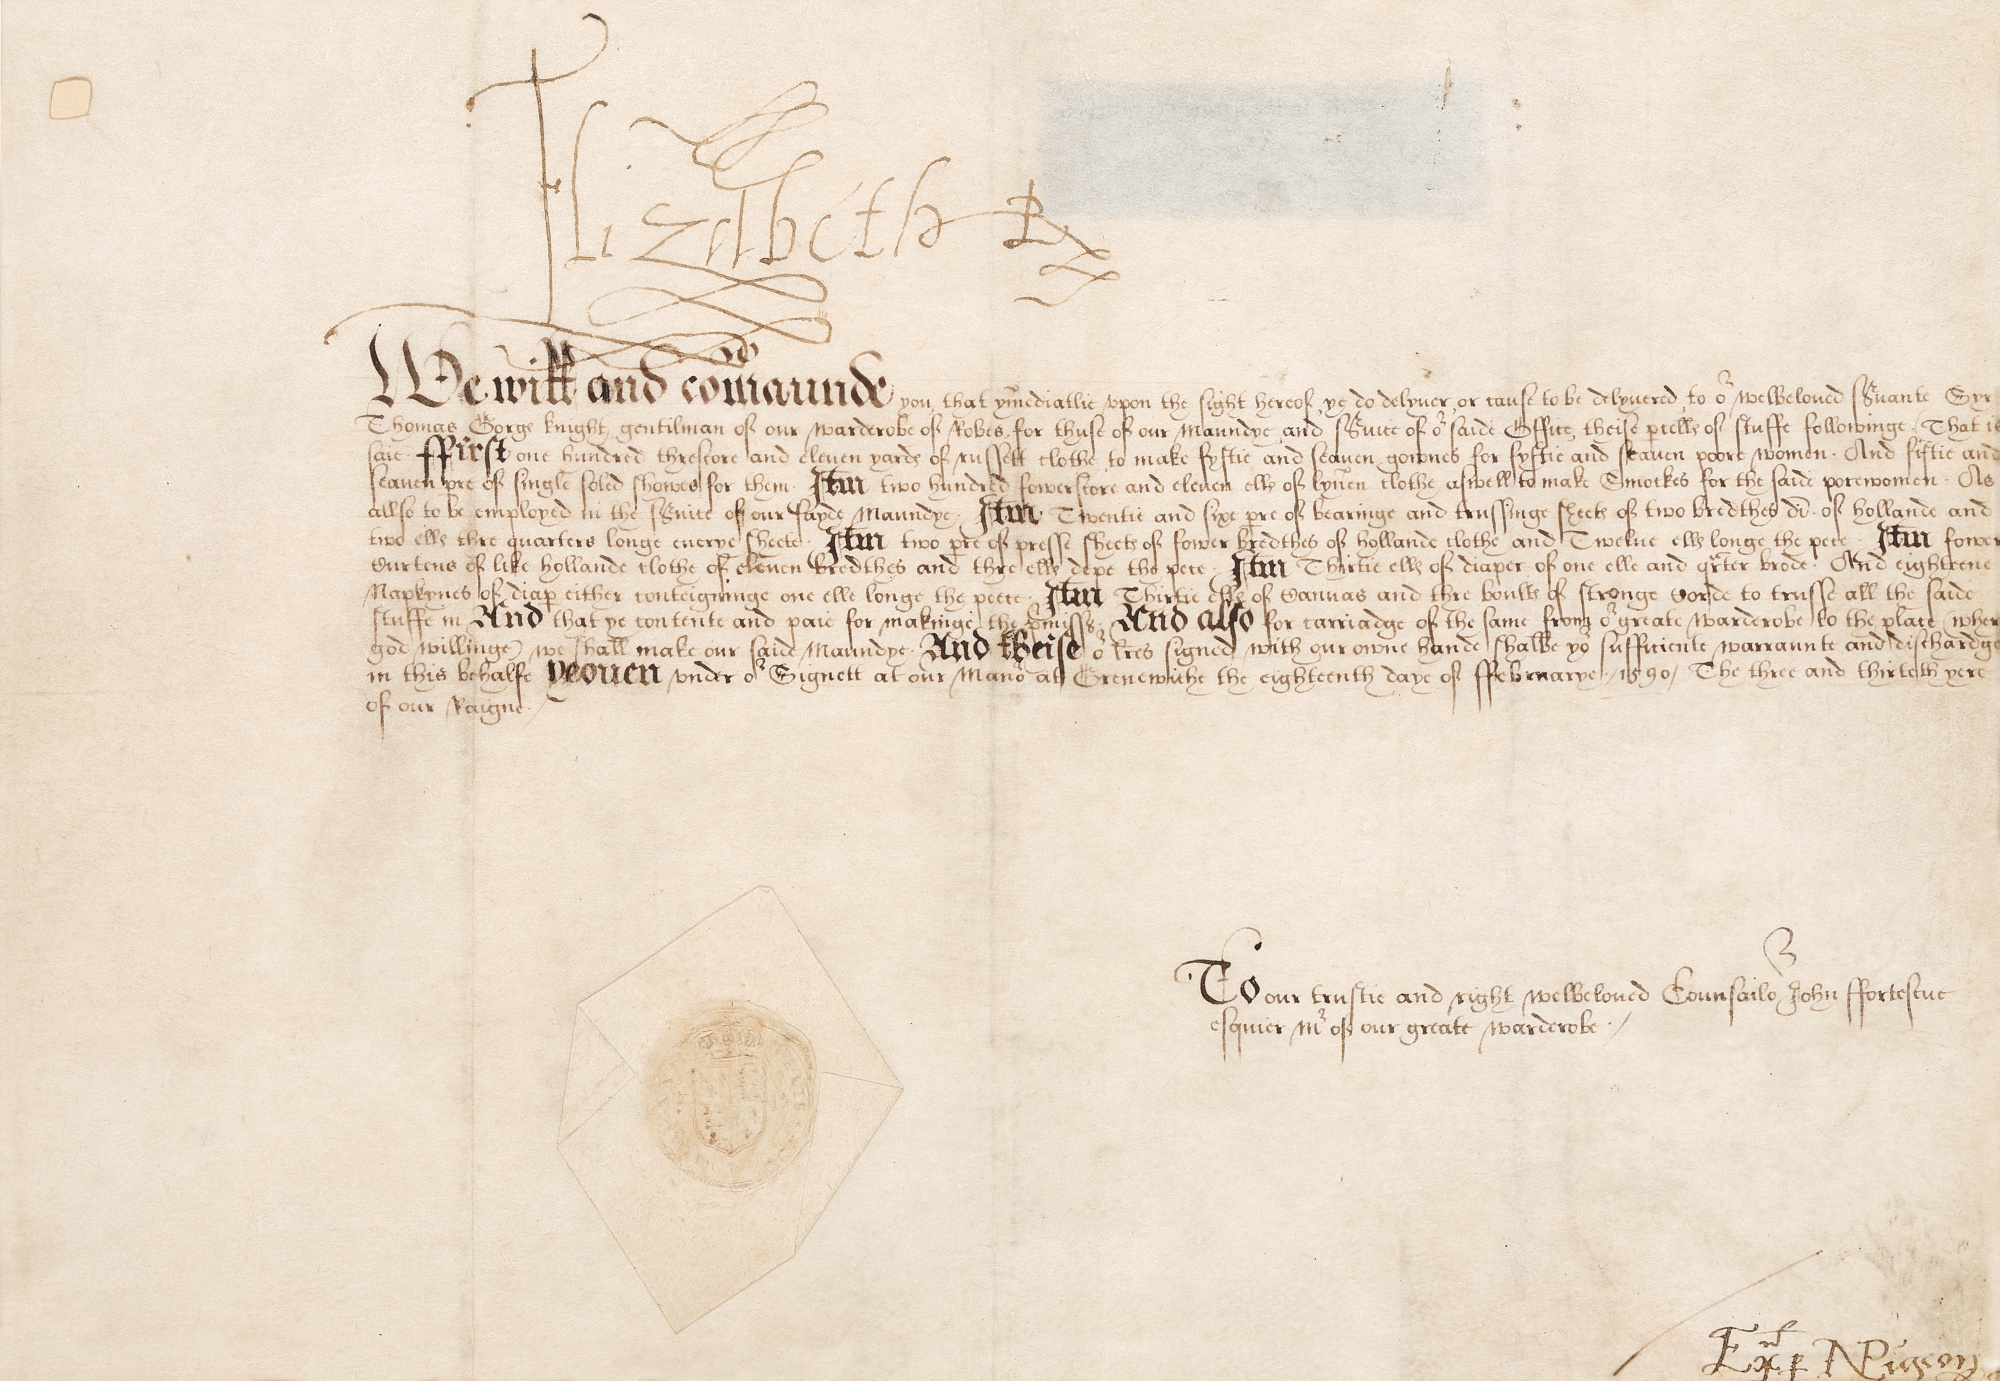 Elizabeth R
We will and com̄aunde you, that ym̄ediatlie vpon the sight hereof, ye do delyuer, or cause to be delyuered, to oʳ welbeloued sʳuante Syr
Thomas Gorge knight, gentilman of our warderobe of Robes, for thuse of our Maundye, and sʳuice of oʳ saide Office, theise p̄cells of stuffe followinge. That is
saie. ffirst one hundred threscore and eleven yards of russett clothe, to make fyftie and seaven gownes for fyftie and seaven poore women. And fiftie and
seaven pre of single soled showes for them. Itm̄ two hundred fowerscore and eleven ells of lyn̄en clothe aswell to make Smockes for the saide porewomen. As
allso to be employed in the sʳuice of our sayde Maundye. Itm̄ Twentie and sixe pre of bearinge and trussinge sheets of two bredthes di. of hollande and
two ells thre quarters longe euerye sheete. Itm̄ two pre of presse sheets of fower bredthes of hollande clothe and Twelue ells longe the pece. Itm̄ fower
Curtens of like hollande clothe of eleven bredthes and thre ells depe the pece. Itm̄ Thirtie ells of diaper of one elle and qʳter brode. And eightene
Napkynes of diap̄ either conteigninge one elle longe the peece. Itm̄ Thirtie ells of Canuas and thre boults of stronge Corde to trusse all the saide
stuffe in And that ye contente and paie for makinge the p̄misses. And also for carriadge of the same from oʳ greate warderobe to the place (wher
god willinge) we shall make our saide Maundye. And theise oʳ l̄res signed with our owne hande shalbe yoʳ sufficiente warraunte and dischardge
in this behalfe yeouen vnder oʳ Signett at our Manoʳ at Grenewiche the eighteenth daye of ffebruarye. 1590 / The three and thirteth yere
of our Raigne.
To our trustie and right welbeloued Counsailoʳ John ffortescue
esquier mʳ of our greate warderobe.
Exʳ p N Pigeon